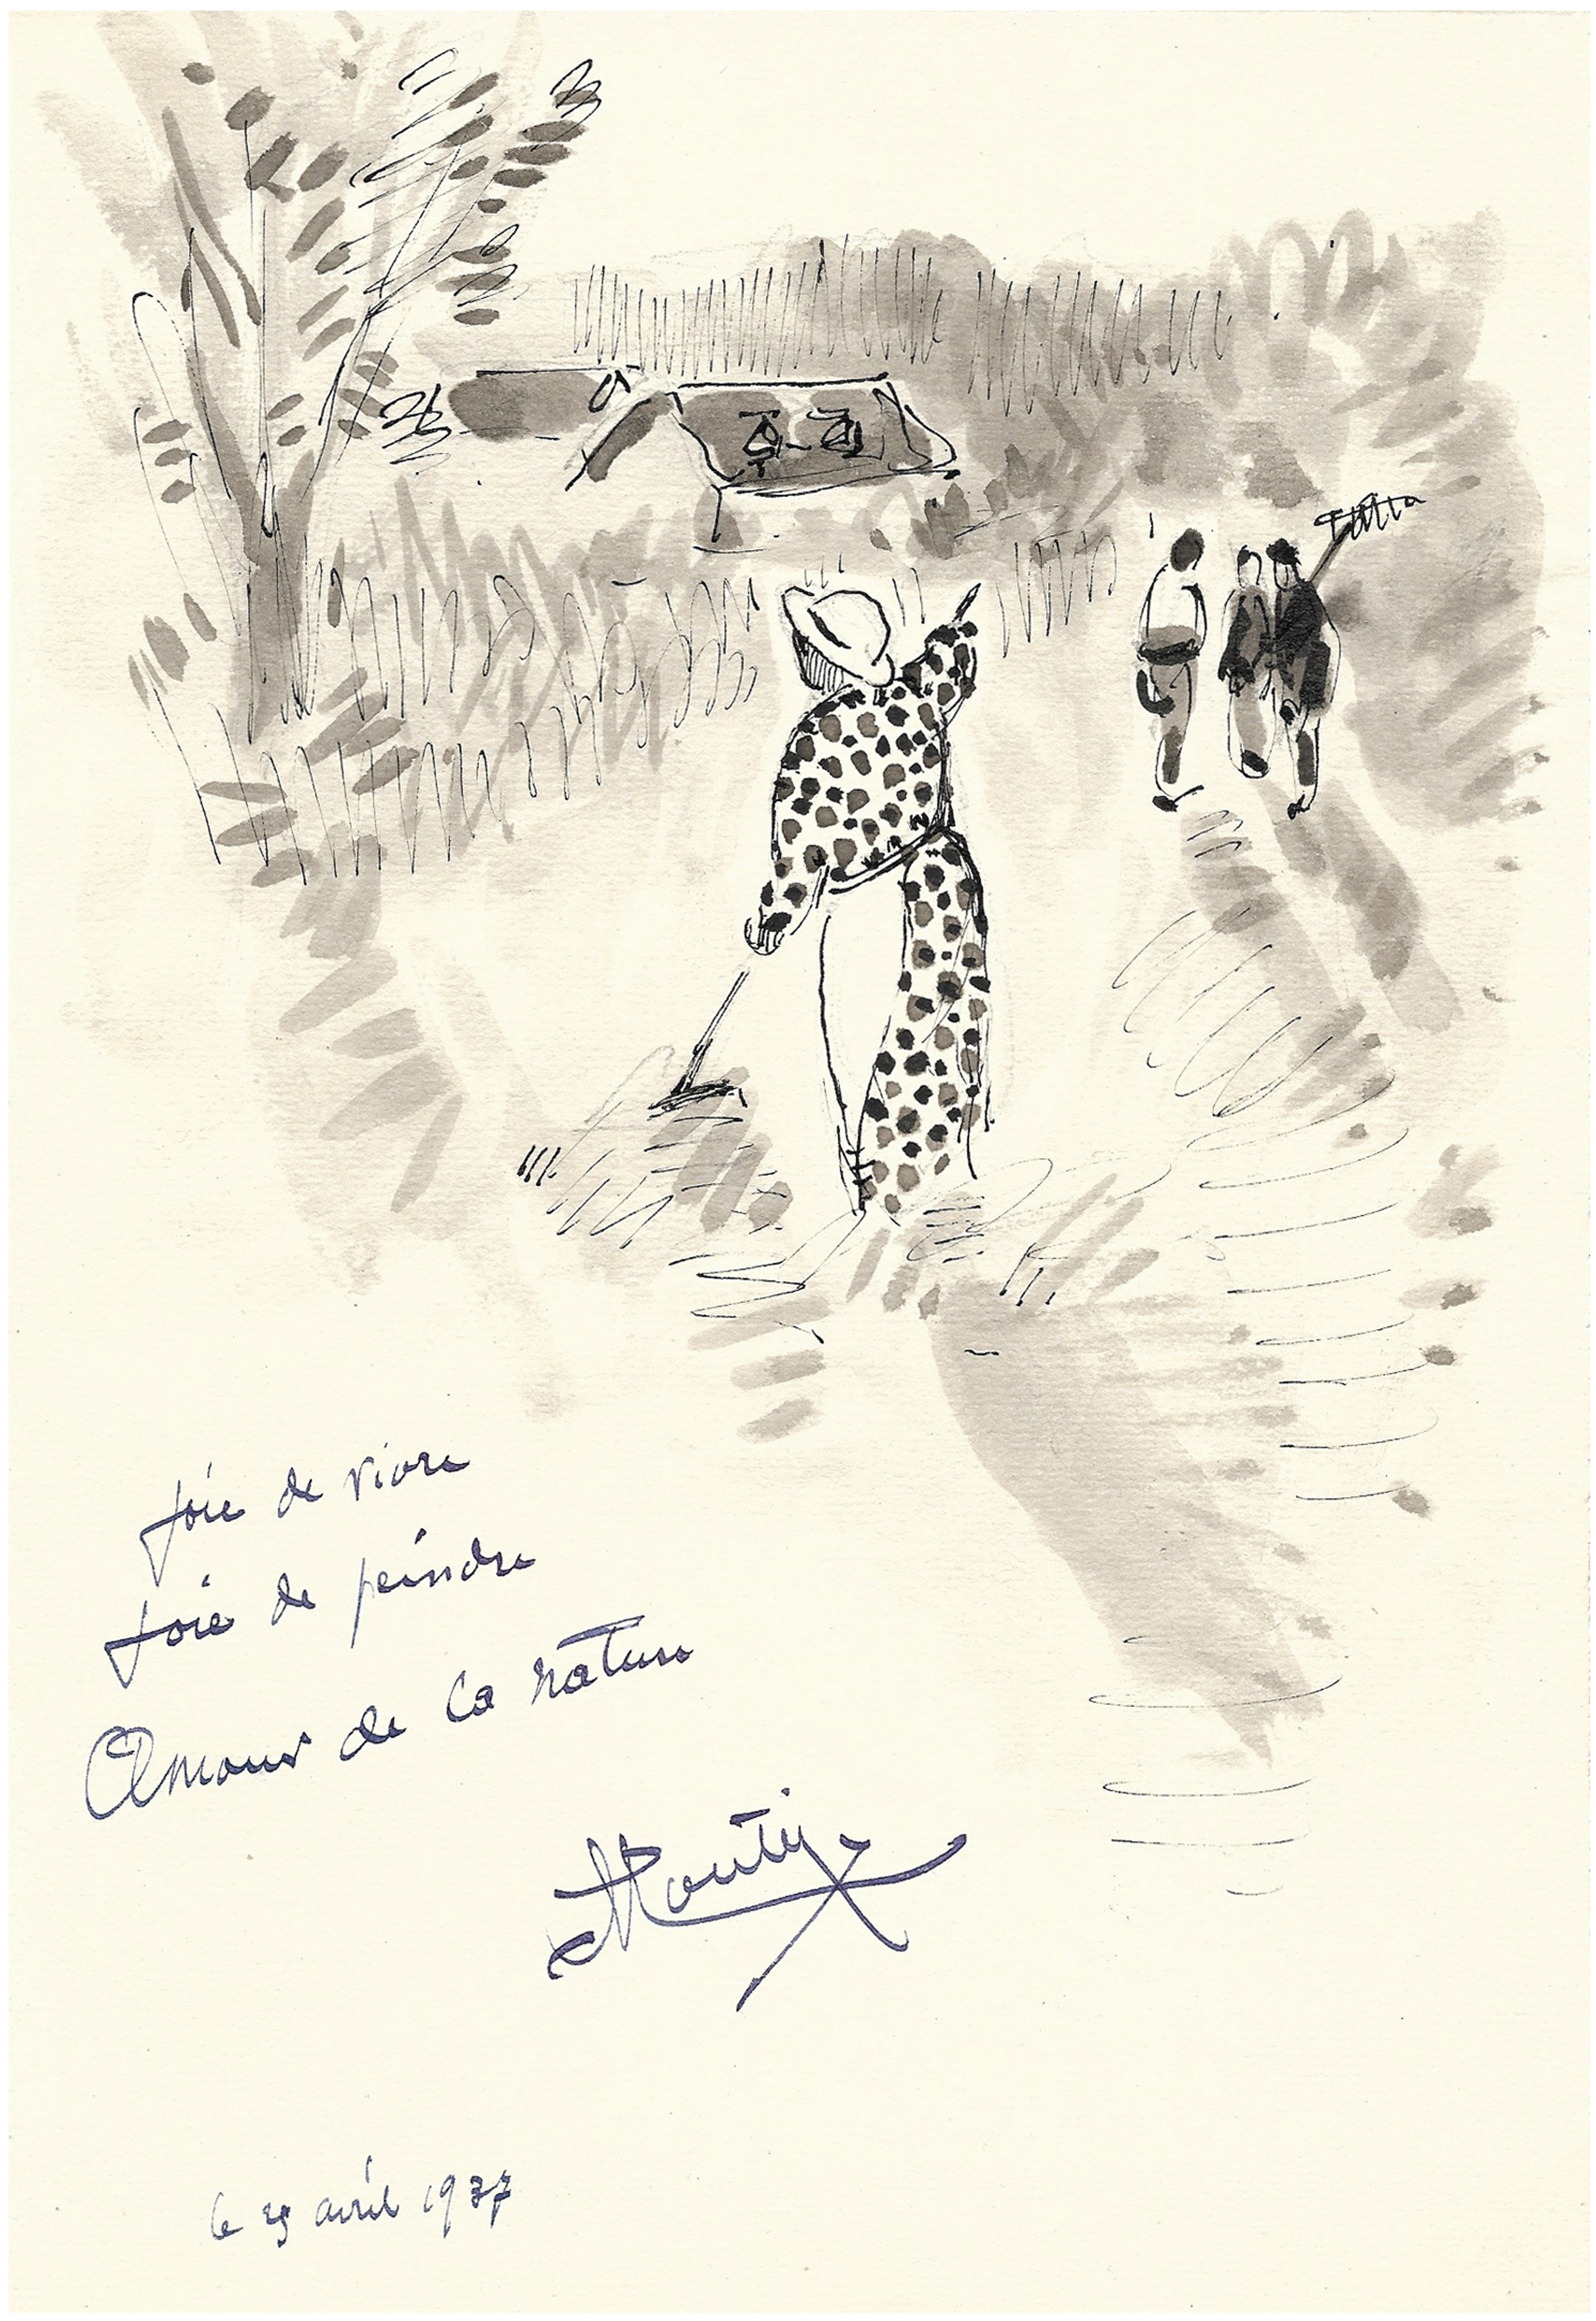 Joie de vivre
Joie de peindre
Amour de la nature
le avril 1977